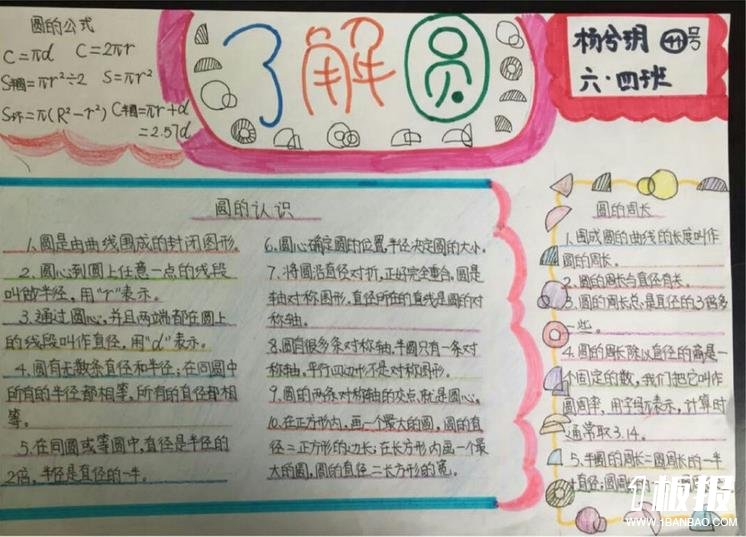 圆的公式
C=πd C=2πr
S半圆=πr²÷2 S=πr²
S环=π(R²-r²) C半圆=πr+d
=2.57d
了解圆
杨兮玥 44号
六·四班
圆的认识
1.圆是由曲线围成的封闭图形。
2.圆心到圆上任意一点的线段
叫做半径，用"r"表示。
3.通过圆心，并且两端都在圆上
的线段叫作直径，用"d"表示。
4.圆有无数条直径和半径；在同圆中
所有的半径都相等，所有的直径都相
等。
5.在同圆或等圆中，直径是半径的
2倍，半径是直径的一半。
6.圆心确定圆的位置，半径决定圆的大小。
7.将圆沿直径对折，正好完全重合，圆是
轴对称图形，直径所在的直线是圆的对
称轴。
8.圆有很多条对称轴，半圆只有一条对
称轴，平行四边形不是对称图形。
9.圆的两条对称轴的交点，就是圆心。
10.在正方形内，画一个最大的圆，圆的直
径=正方形的边长；在长方形内画一个最
大的圆，圆的直径=长方形的宽。
圆的周长
1.围成圆的曲线的长度叫作
圆的周长。
2.圆的周长与直径有关。
3.圆的周长总是直径的3倍多
一些。
4.圆的周长除以直径的商是一
个固定的数，我们把它叫作
圆周率，用字母π表示，计算时
通常取3.14。
5.半圆的周长=圆周长的一半
+直径；圆周长
板报
WWW.1BANBAO.COM